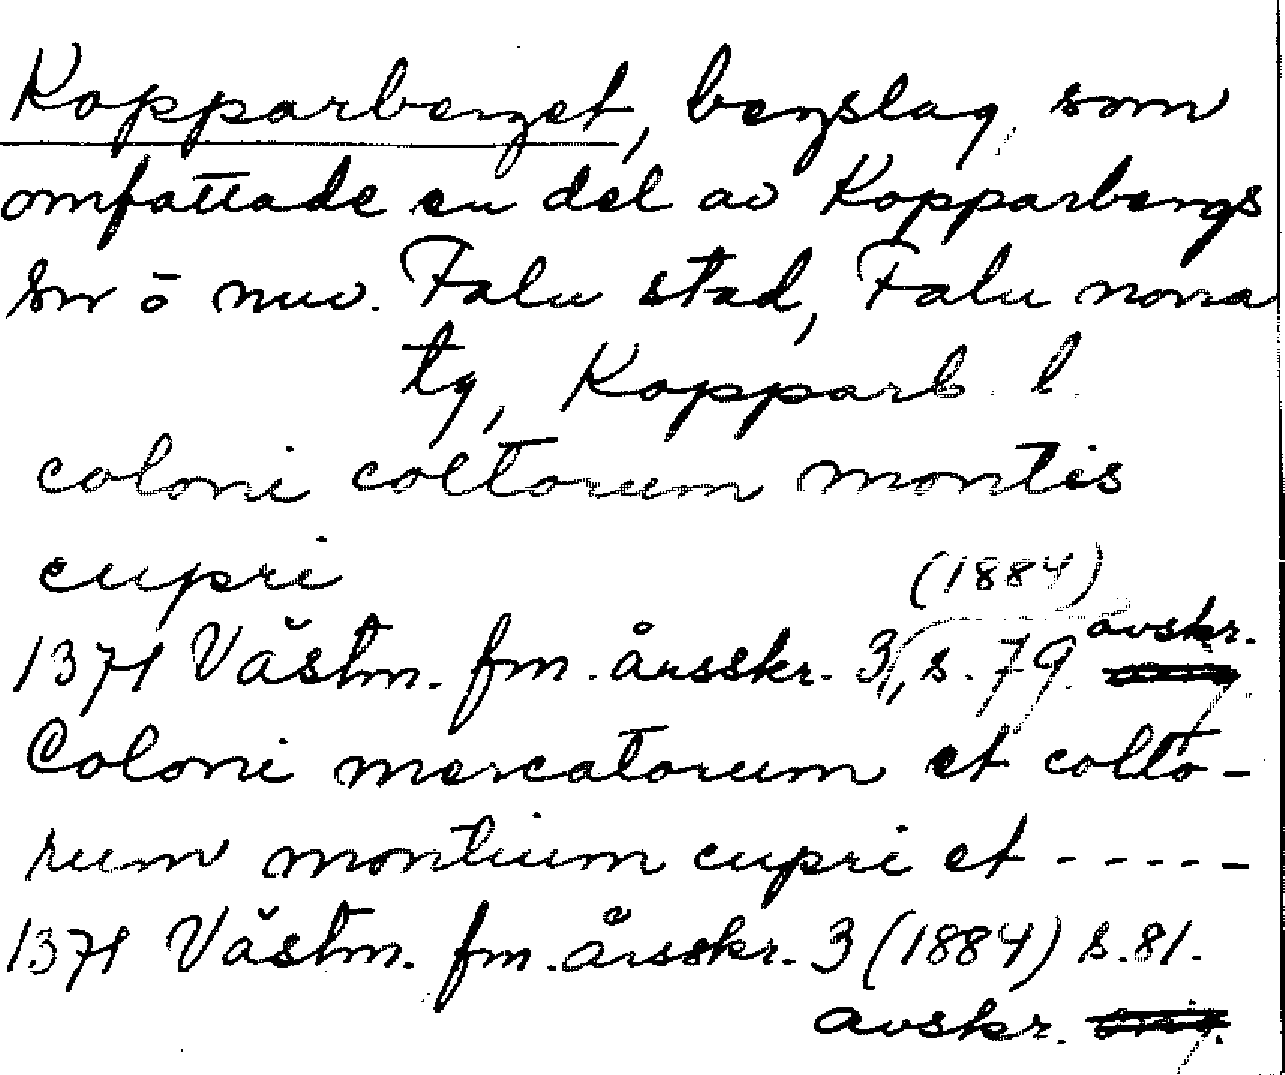 Kopparberget, bergslag som
omfattade en del av Kopparbergs
sn o nuv. Falu stad, Falu norra
tg, Kopparb. l.
coloni coltorum montis
cupri
(1884)
1371 Västm. fm. årsskr. 3, s. 79. avskr.
Coloni mercatorum et colto-
rum montium cupri et -----
1371 Västm. fm. årsskr. 3 (1884) s. 81.
avskr. orig.